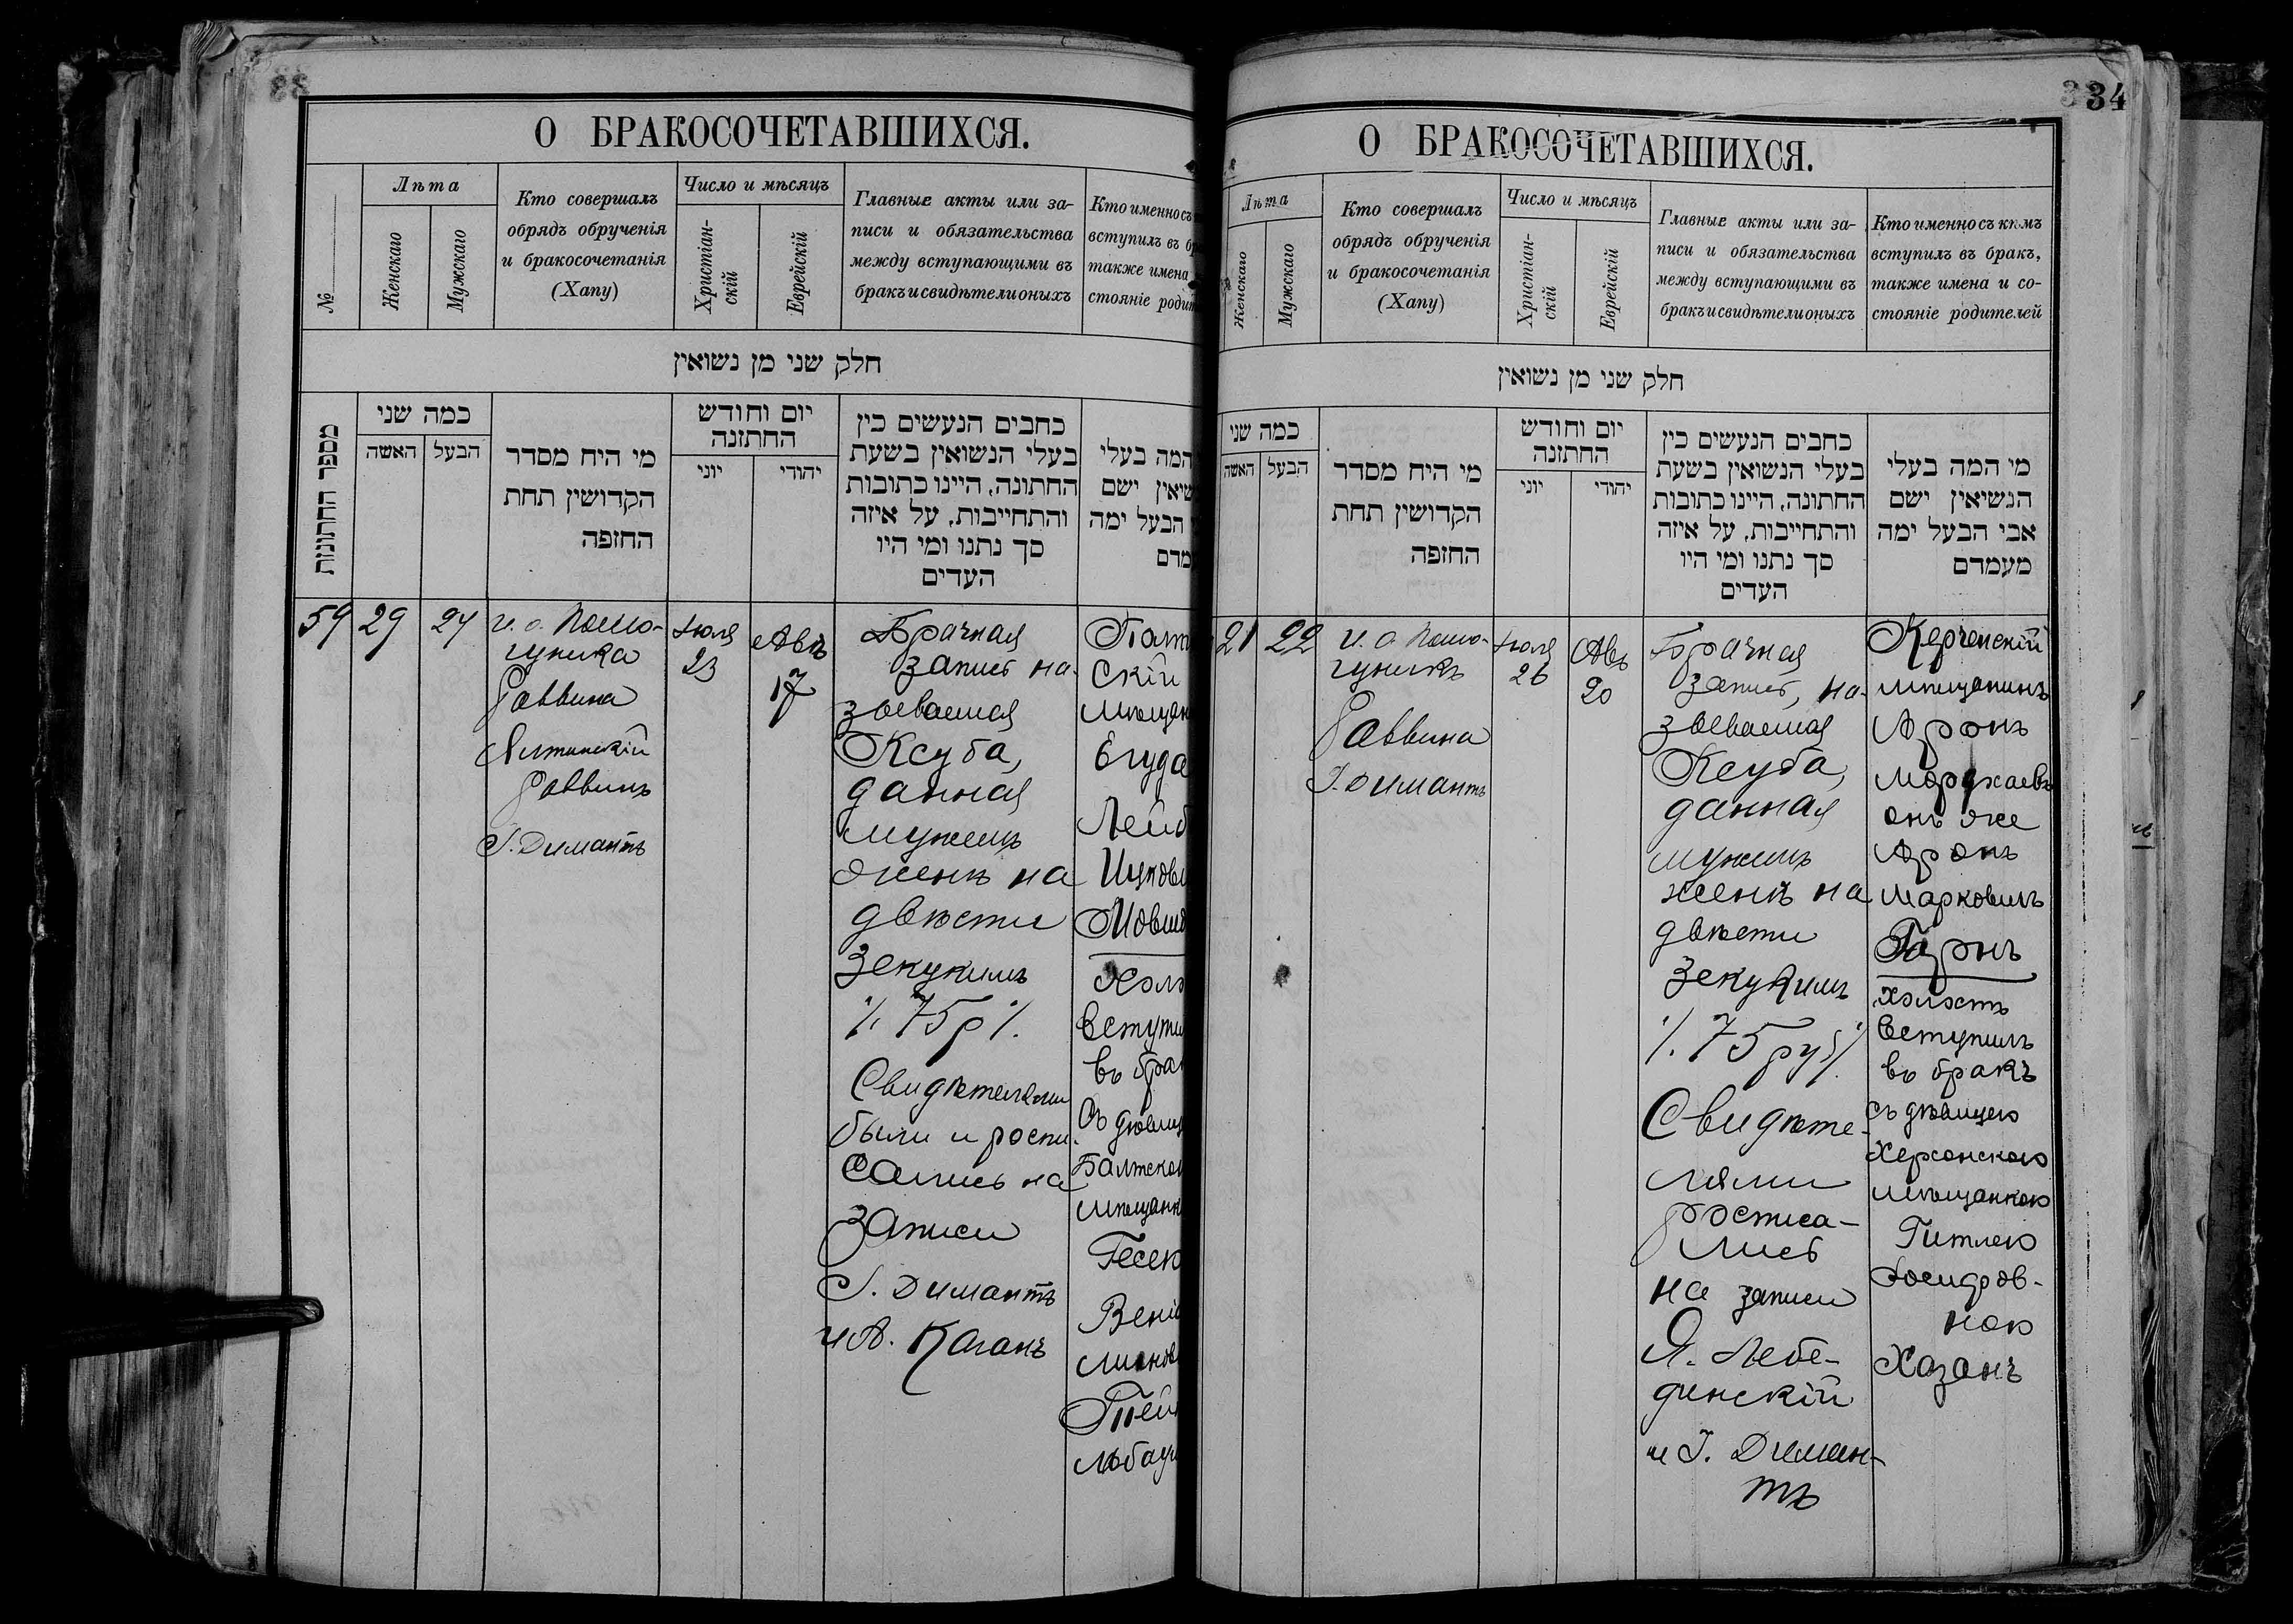 О БРАКОСОЧЕТАВШИХСЯ.
№
Лѣта
Женскаго
Мужскаго
Кто совершалъ
обрядъ обрученія
и бракосочетанія
(Хапу)
Число и мѣсяцъ
Христіан-
скій
Еврейскій
Главные акты или за-
писи и обязательства
между вступающими въ
бракъ и свидѣтели оныхъ
Кто именно съ
вступилъ въ бр
также имена
стояніе родит
חלק שני מן נשואין
מספר החתונות
כמה שני
האשה
הבעל
מי היח מסדר
הקדושין תחת
החזפה
יום וחודש
החתזנה
יוני
יהודי
כחבים הנעשים כין
בעלי הנשואין בשעת
החתונה, היינו כתובות
והתחייבות, על איזה
סך נתנו ומי היו
העדים
המה בעלי
שיאין ישם
הבעל ימה
מדם
59
29
24
и. о. Помо-
щника
Раввина
Ялтинскій
Раввинъ
І. Димантъ
Іюля
23
Авъ
17
Брачная
запись на-
зываемая
Ксуба,
данная
мужемъ
женѣ на
двѣсти
Зекукимъ
/. 75 р /.
Свидѣтелями
были и роспи-
сались на
записи
І. Димантъ
и А. Каганъ
Полт
скій
мѣщан
Егуда
Лейб
Ицкови
Мовш
холо
вступи
въ бра
съ дѣвиц
Балтско
мѣщанк
Гесею
Вені
минов
Тей
льбаум
34
О БРАКОСОЧЕТАВШИХСЯ.
Лѣта
Женскаго
Мужскаго
Кто совершалъ
обрядъ обрученія
и бракосочетанія
(Хапу)
Число и мѣсяцъ
Христіан-
скій
Еврейскій
Главные акты или за-
писи и обязательства
между вступающими въ
бракъ и свидѣтели оныхъ
Кто именно съ кѣмъ
вступилъ въ бракъ,
также имена и со-
стояніе родителей
חלק שני מן נשואין
כמה שני
האשה
הבעל
מי היח מסדר
הקדושין תחת
החזפה
יום וחודש
החתזנה
יוני
יהודי
כחבים הנעשים כין
בעלי הנשואין בשעת
החתונה, היינו כתובות
והתחייבות, על איזה
סך נתנו ומי היו
העדים
מי המה בעלי
הנשיאין ישם
אבי הבעל ימה
מעמדם
21
22
и. о. Помо-
щникъ
Раввина
І. Димантъ
Іюля
26
Авъ
20
Брачная
запись, на-
зываемая
Ксуба,
данная
мужемъ
женѣ на
двѣсти
Зекукимъ
/. 75 руб /.
Свидѣте-
лями
росписа-
лись
на записи
Я. Лебе-
динскій
и І. Диман-
тъ
Керченскій
мѣщанинъ
Аронъ
Мордхаевъ
онъ же
Аронъ
Марковичъ
Гурнъ
холостъ
вступилъ
въ бракъ
съ дѣвицею
Херсонскою
мѣщанкою
Гитлею
Хосифов-
ною
Хазанъ